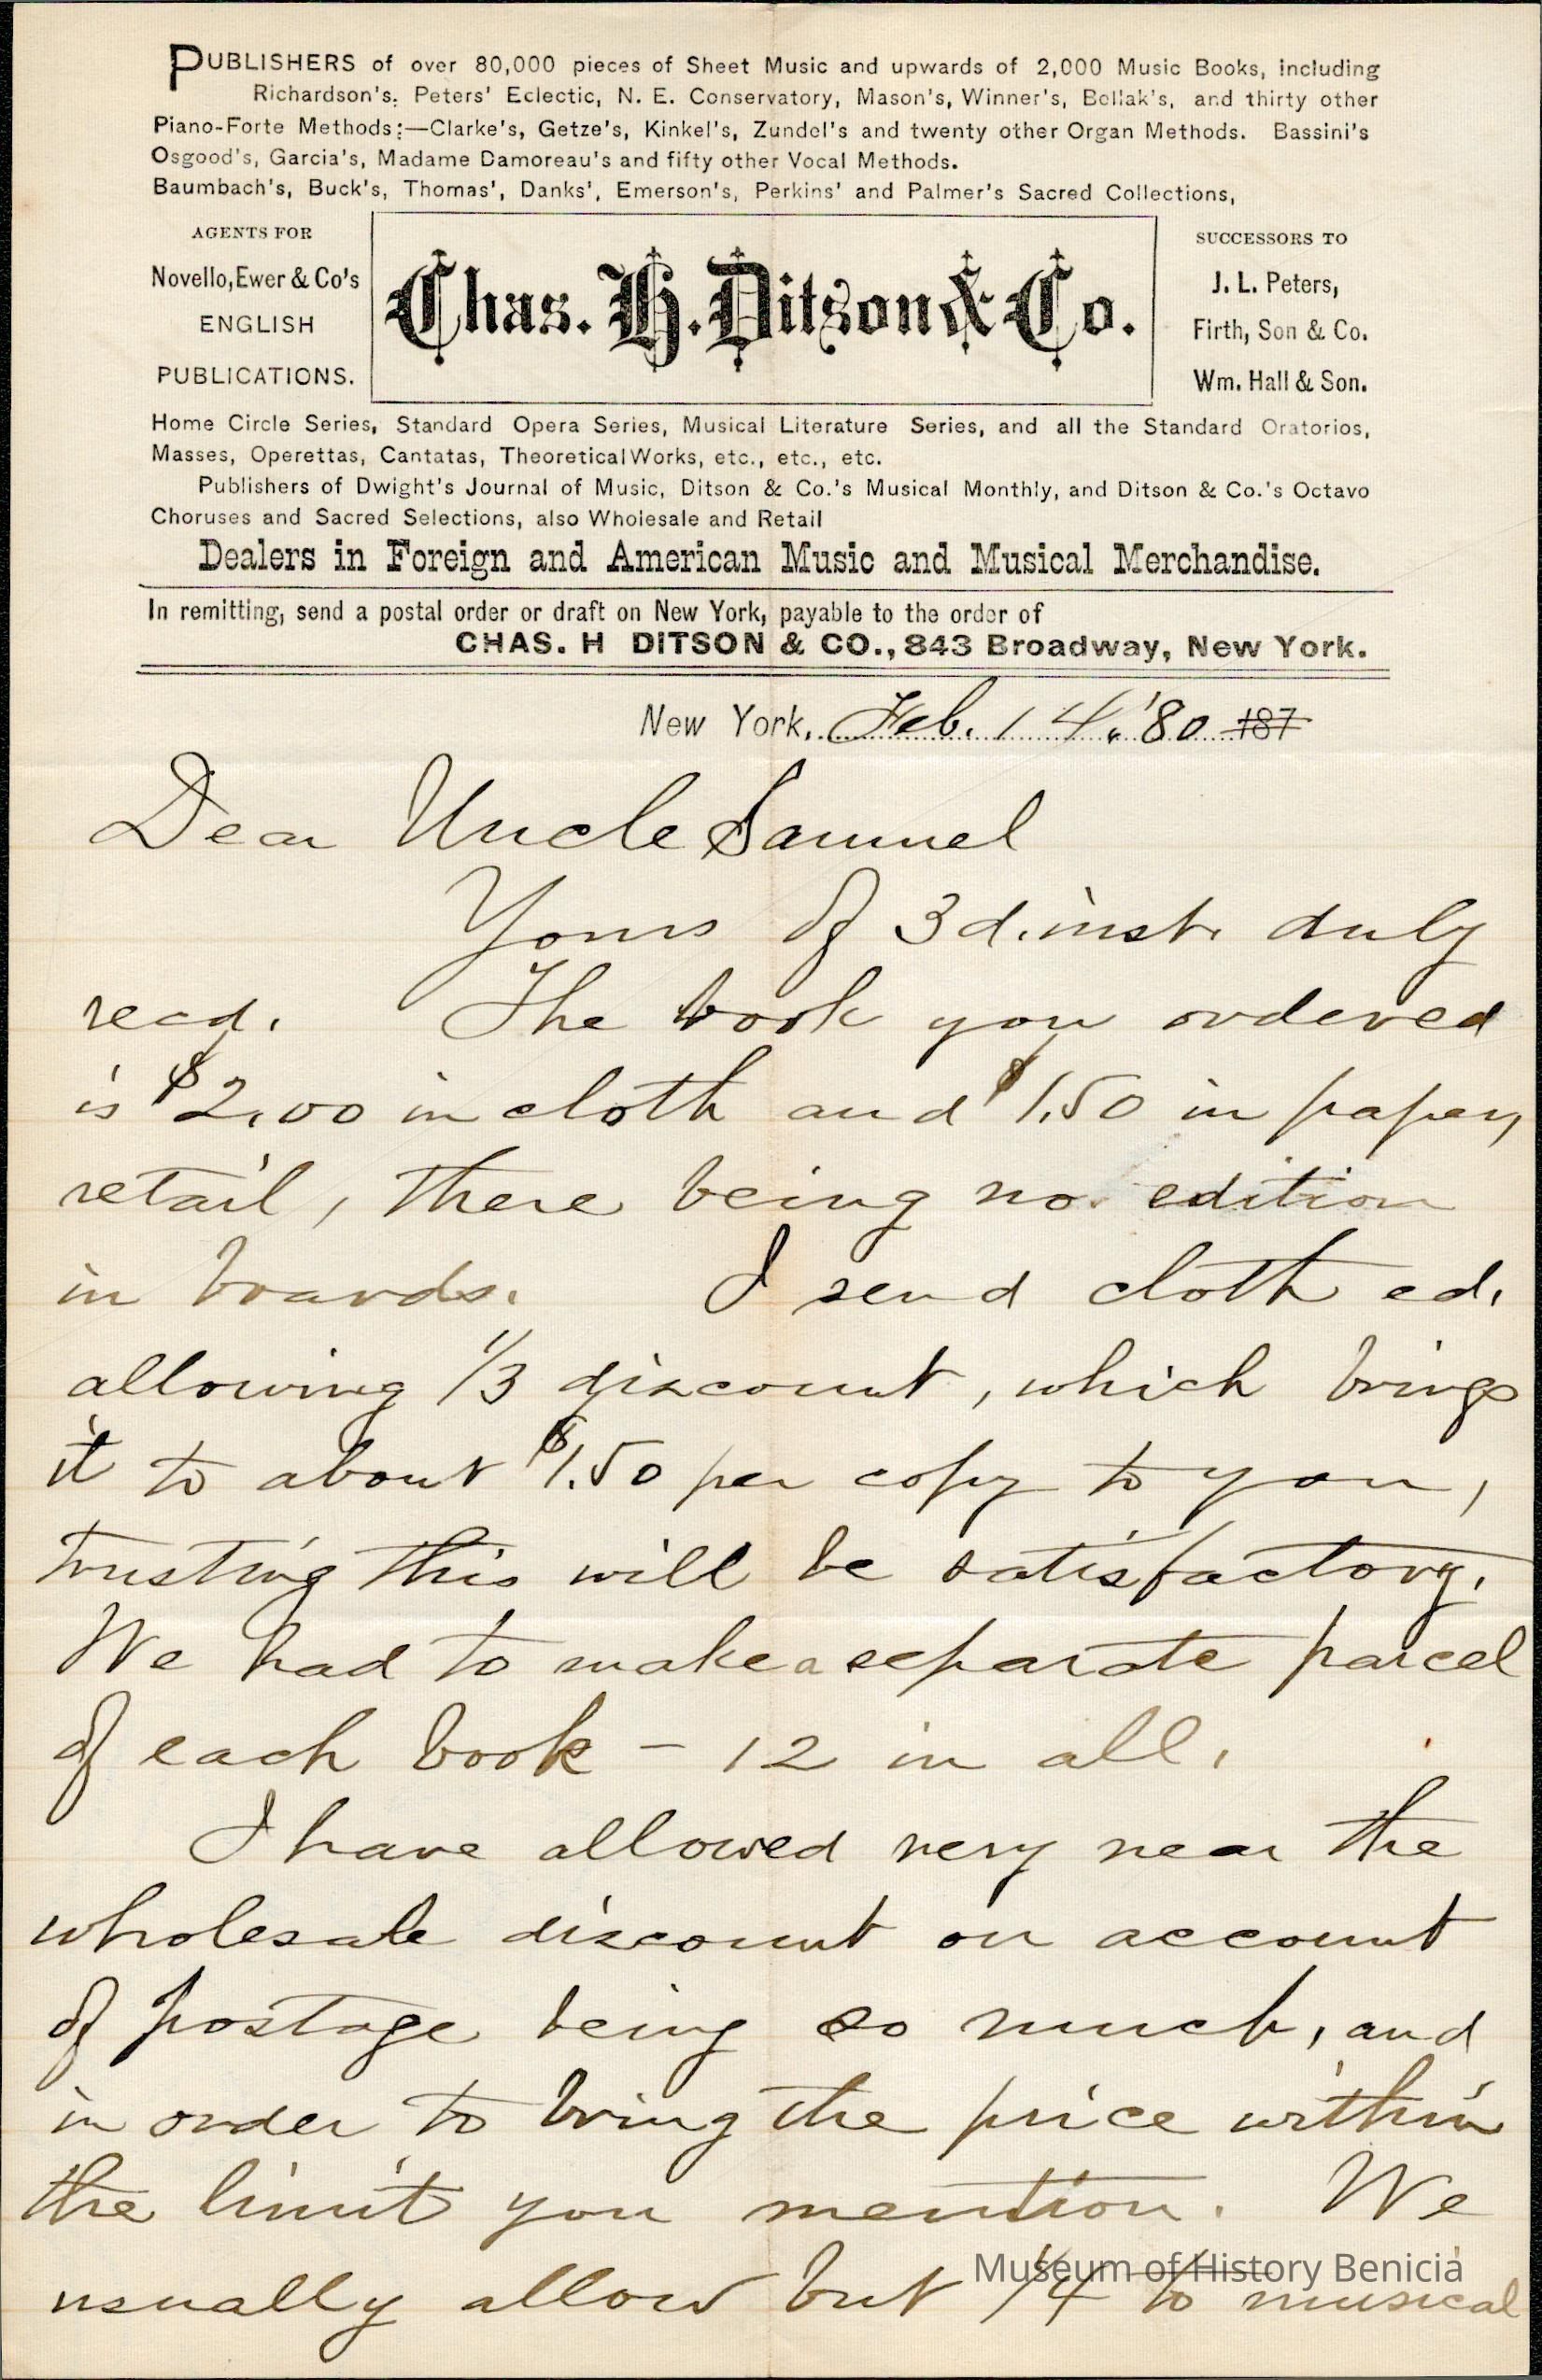 PUBLISHERS of over 80,000 pieces of Sheet Music and upwards of 2,000 Music Books, including
Richardson's. Peters' Eclectic, N. E. Conservatory, Mason's, Winner's, Bellak's, and thirty other
Piano-Forte Methods:—Clarke's, Getze's, Kinkel's, Zundel's and twenty other Organ Methods. Bassini's
Osgood's, Garcia's, Madame Damoreau's and fifty other Vocal Methods.
Baumbach's, Buck's, Thomas', Danks', Emerson's, Perkins' and Palmer's Sacred Collections,
AGENTS FOR
Novello, Ewer & Co's
ENGLISH
PUBLICATIONS.
Chas. H. Ditson & Co.
SUCCESSORS TO
J. L. Peters,
Firth, Son & Co.
Wm. Hall & Son.
Home Circle Series, Standard Opera Series, Musical Literature Series, and all the Standard Oratorios,
Masses, Operettas, Cantatas, Theoretical Works, etc., etc., etc.
Publishers of Dwight's Journal of Music, Ditson & Co.'s Musical Monthly, and Ditson & Co.'s Octavo
Choruses and Sacred Selections, also Wholesale and Retail
Dealers in Foreign and American Music and Musical Merchandise.
In remitting, send a postal order or draft on New York, payable to the order of
CHAS. H DITSON & CO., 843 Broadway, New York.
New York, Feb. 14, '80 187
Dear Uncle Samuel
Yours of 3d. inst. duly
recd. The book you ordered
is $2.00 in cloth and $1.50 in paper,
retail, there being no edition
in boards. I send cloth ed.
allowing 1/3 discount, which brings
it to about $1.50 per copy to you,
trusting this will be satisfactory.
We had to make a separate parcel
of each book - 12 in all.
I have allowed very near the
wholesale discount on account
of postage being so much, and
in order to bring the price within
the limit you mention. We
usually allow but 1/4 to musical
Museum of History Benicia